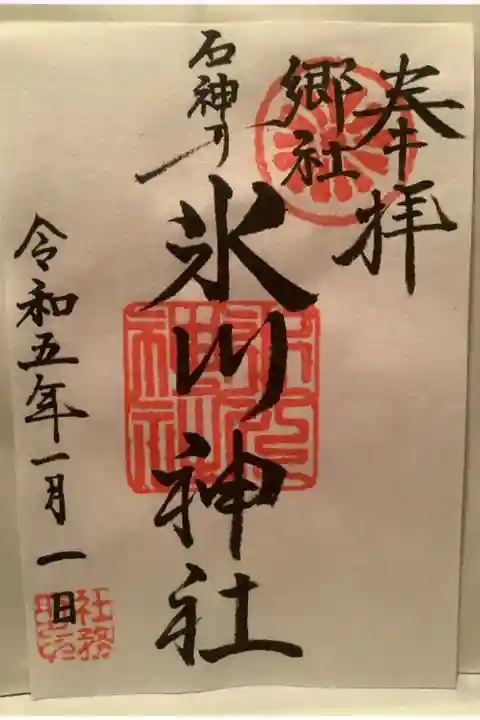 奉拝
郷社
石神井
氷川神社
氷川神社
令和五年一月一日
社務